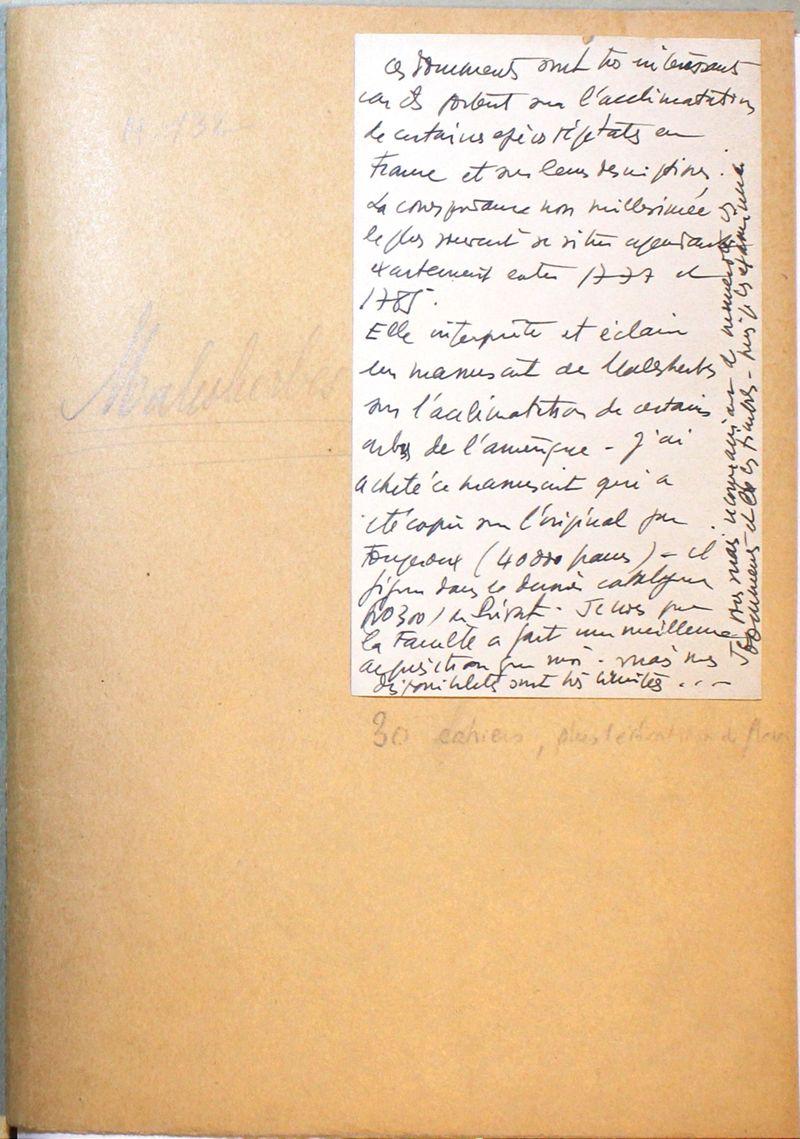 H. 132
Malesherbes
Ces documents sont très intéressants
car ils portent sur l'acclimatation
de certaines espèces végétales en
France et sur leurs descriptions.
La correspondance non millésimée
le plus souvent se situe cependant
exactement entre 1777 et
1785.
Elle interprète et éclaire
un manuscrit de Malesherbes
sur l'acclimatation de certains
arbres de l'amérique - J'ai
acheté ce manuscrit qui a
été copié sur l'original par
Fougeroux (40000 francs) - il
figure dans le dernier catalogue
de Privat - Je crois que
la Faculté a fait une meilleure
acquisition que moi - mais mes
disponibilités sont très limitées . . .
Je documents et les timbres - puis je les examine
30 cahiers, plus